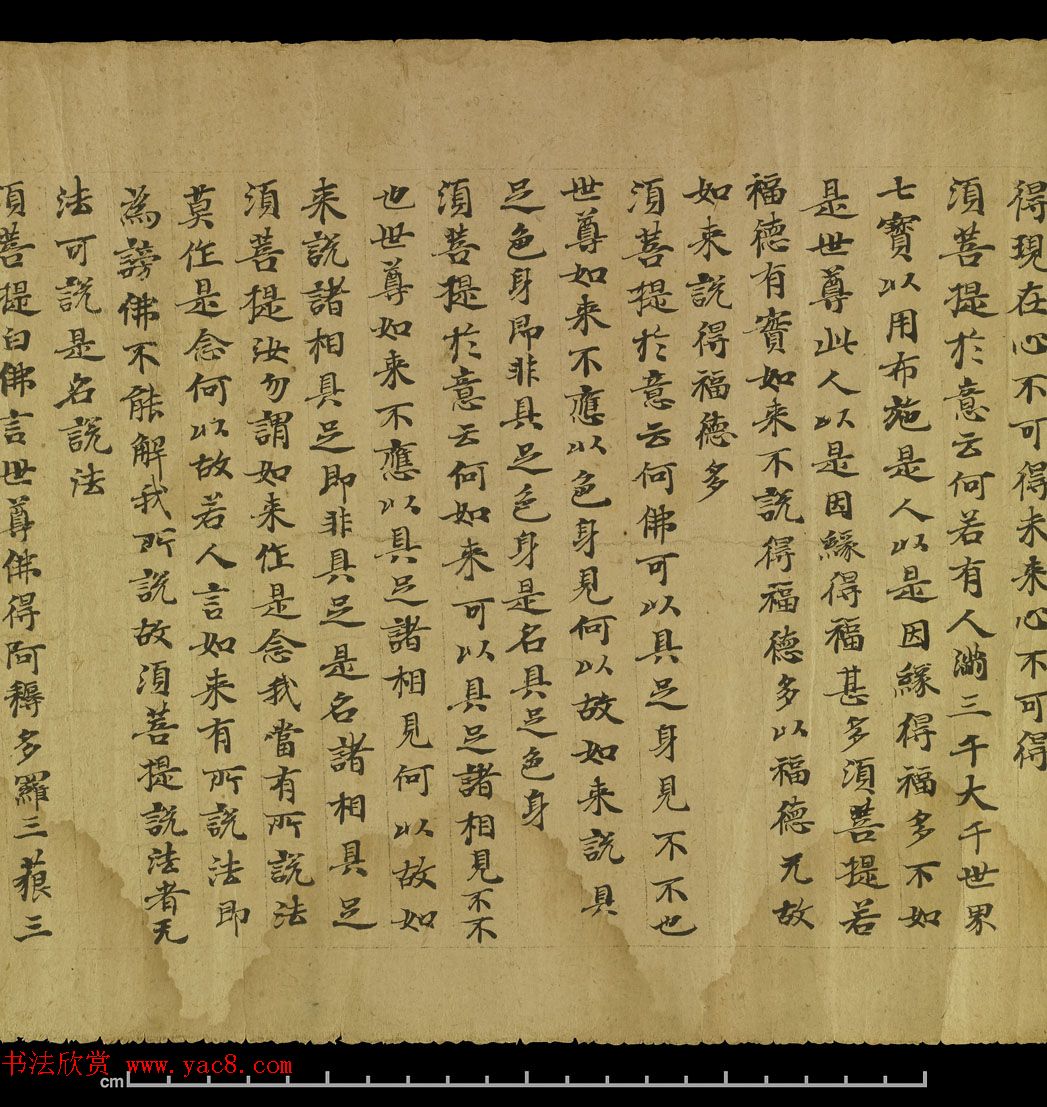 得現在心不可得未来心不可得
須菩提於意云何若有人滿三千大千世界
七寶以用布施是人以是因緣得福多不如
是世尊此人以是因緣得福甚多須菩提若
福德有寶如来不說得福德多以福德无故
如来說得福德多
須菩提於意云何佛可以具足身見不不也
世尊如来不應以色身見何以故如来說具
足色身即非具足色身是名具足色身
須菩提於意云何如来可以具足諸相見不不
也世尊如来不應以具足諸相見何以故如
来說諸相具足即非具足是名諸相具足
須菩提汝勿謂如来作是念我當有所說法
莫作是念何以故若人言如来有所說法即
為謗佛不能解我所說故須菩提說法者无
法可說是名說法
須菩提白佛言世尊佛得阿耨多羅三藐三
书法欣赏 www.yac8.com
cm